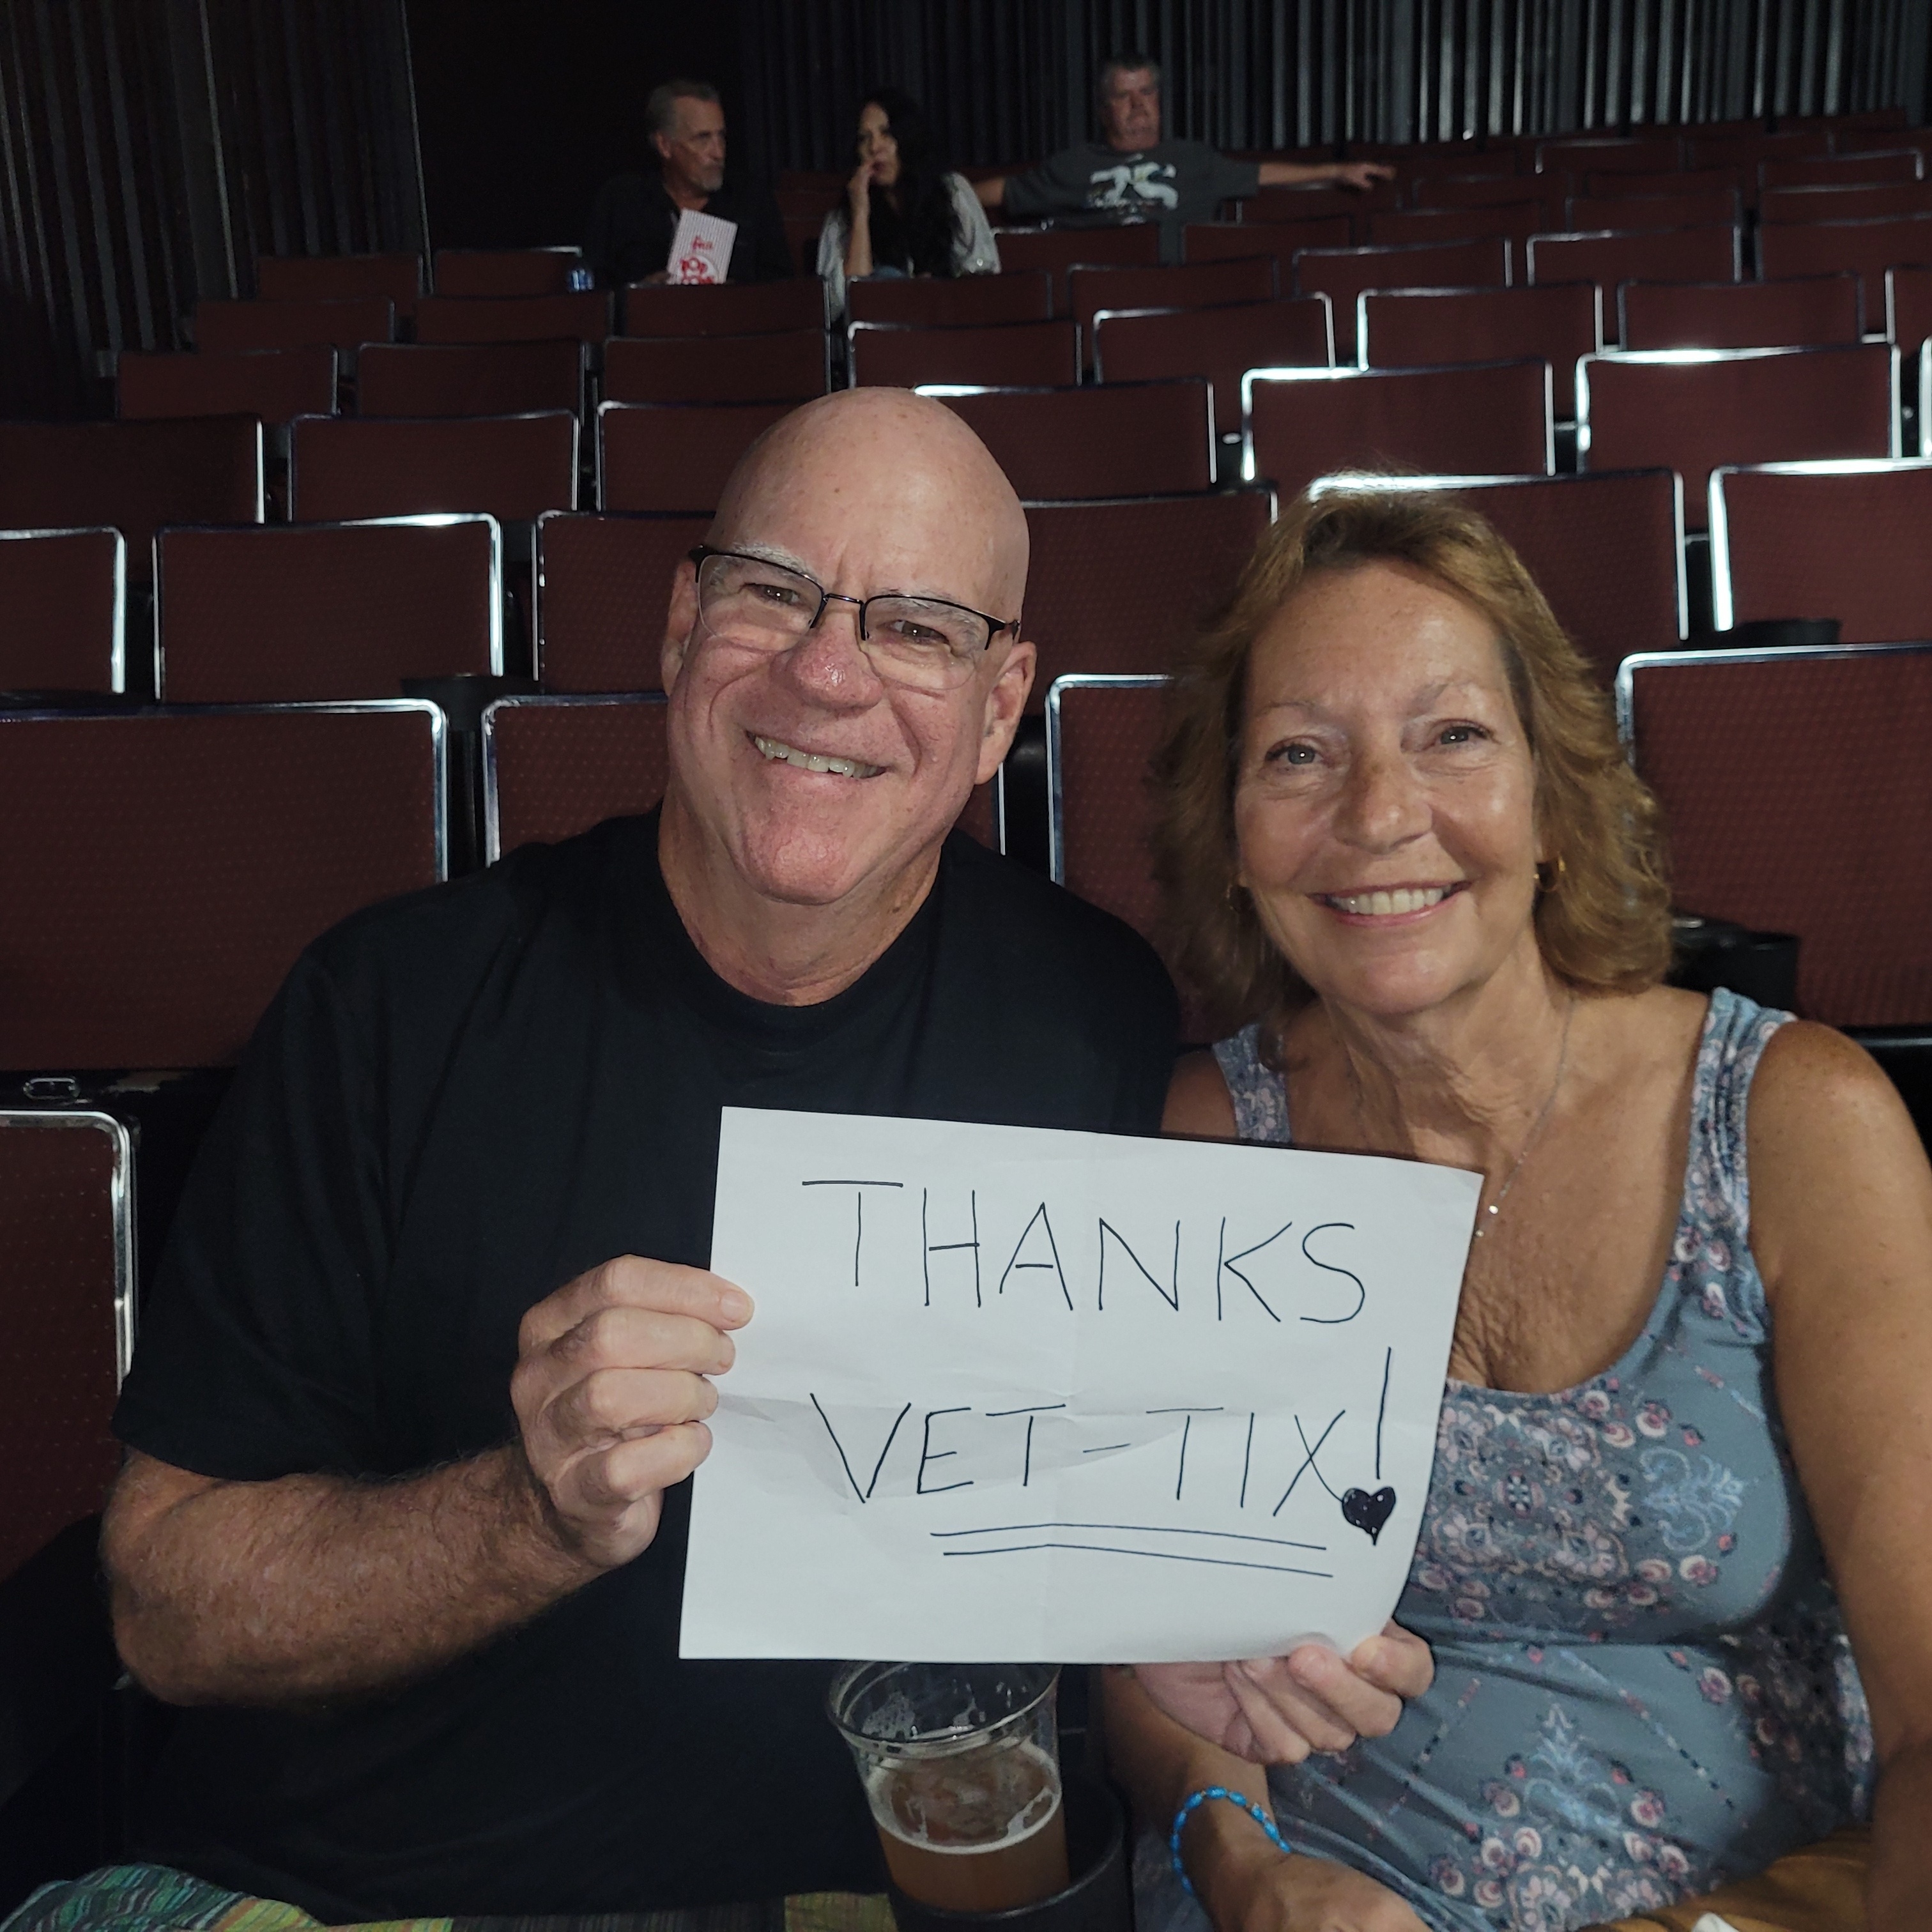 POP
THANKS
VET-TIX!